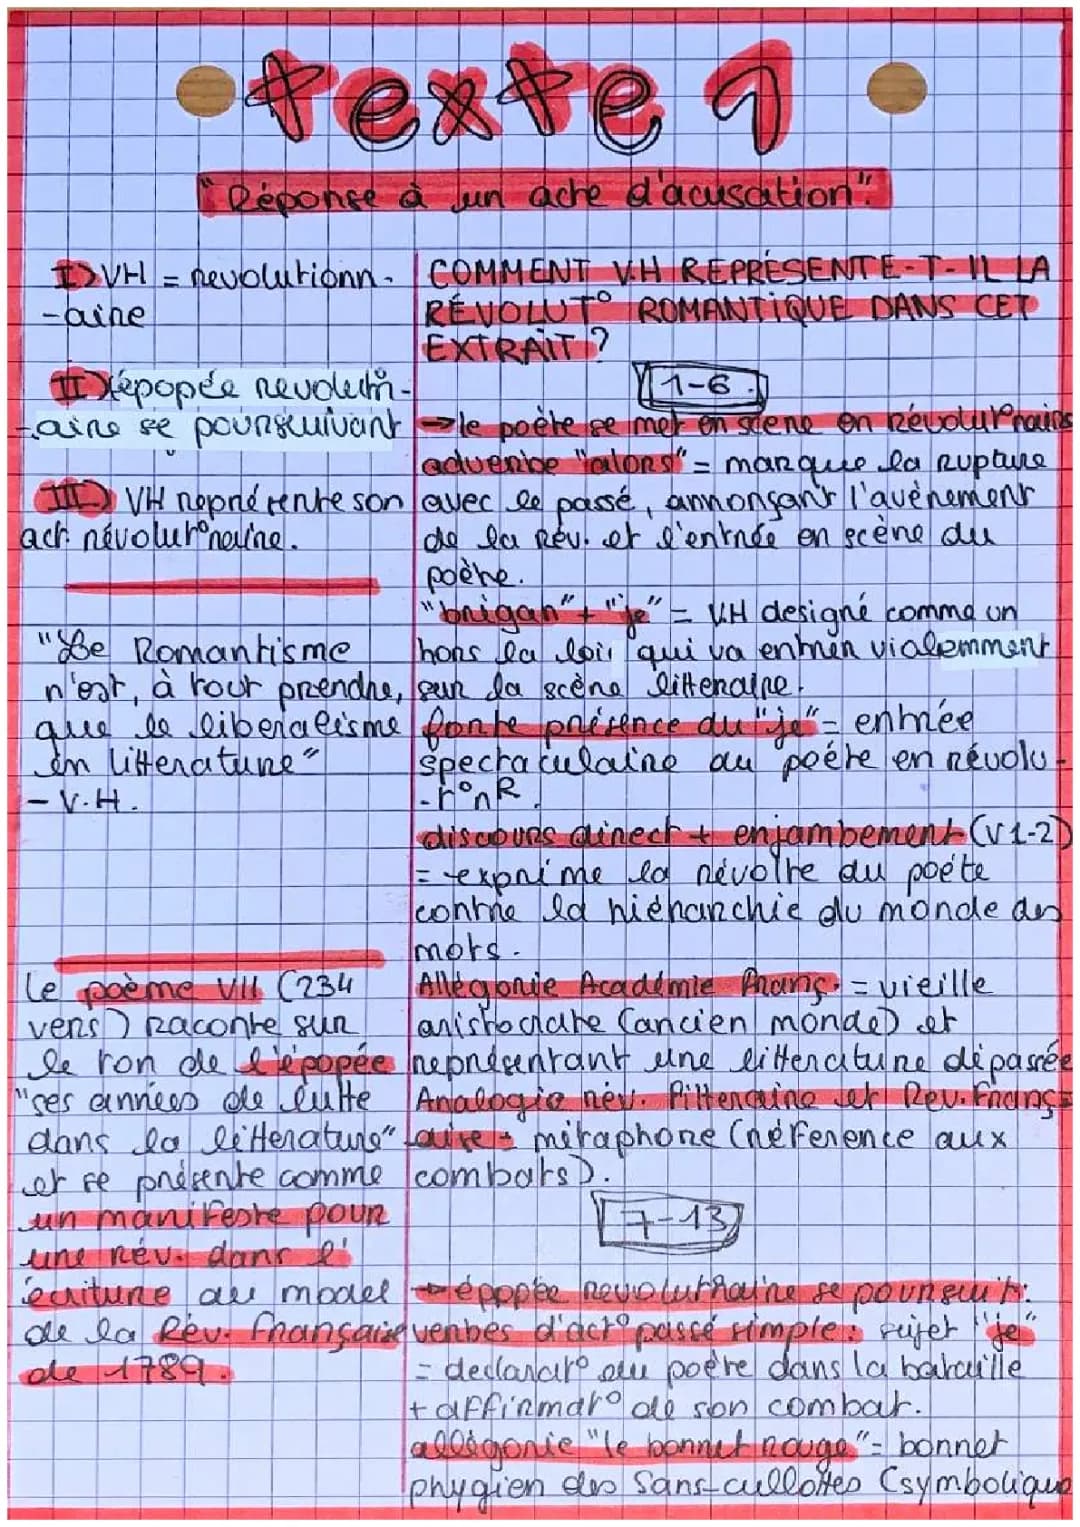 texte 1
"Réponse à un acte d'acusation".
I) VH = revolutionn-
-aire
II) épopée revolut°n-
-aire se poursuivant
III) VH représente son
act. révolut°naire.
"Le Romantisme
n'est, à tout prendre,
que le liberalisme
en litterature"
- V.H.
Le poème VII (234
vers) raconte sur
le ton de l'épopée
"ses années de lutte
dans la litterature"
et se présente comme
un manifeste pour
une rév. dans l'
écriture au model
de la Rév. Française
de 1789.
COMMENT V.H REPRÉSENTE-T-IL LA
RÉVOLUT° ROMANTIQUE DANS CET
EXTRAIT ?
1-6
→ le poète se met en scène en révolut°naire
adverbe "alors" = marque la rupture
avec le passé, annonçant l'avènement
de la Rév. et l'entrée en scène du
poète.
"brigan" + "je" = V.H designé comme un
hors la loi qui va entrer violemment
sur la scène litteraire.
forte présence du "je" = entrée
spectaculaire du poète en révolu-
-t°nR.
discours direct + enjambement (v1-2)
= exprime la révolte du poète
contre la hiérarchie du monde des
mots.
Allégorie Académie Franç. = vieille
aristocrate (ancien monde) et
représentant une litterature dépassée
Analogie rév. litteraire et Rev. Franç=
aise = métaphore (réference aux
combats).
7-13
→ épopée revolut°naire se poursuit:
verbes d'act° passé simple: sujet "je"
= declarat° du poète dans la bataille
+ affirmat° de son combat.
allégorie "le bonnet rouge" = bonnet
phygien des Sans-cullottes (symbolique